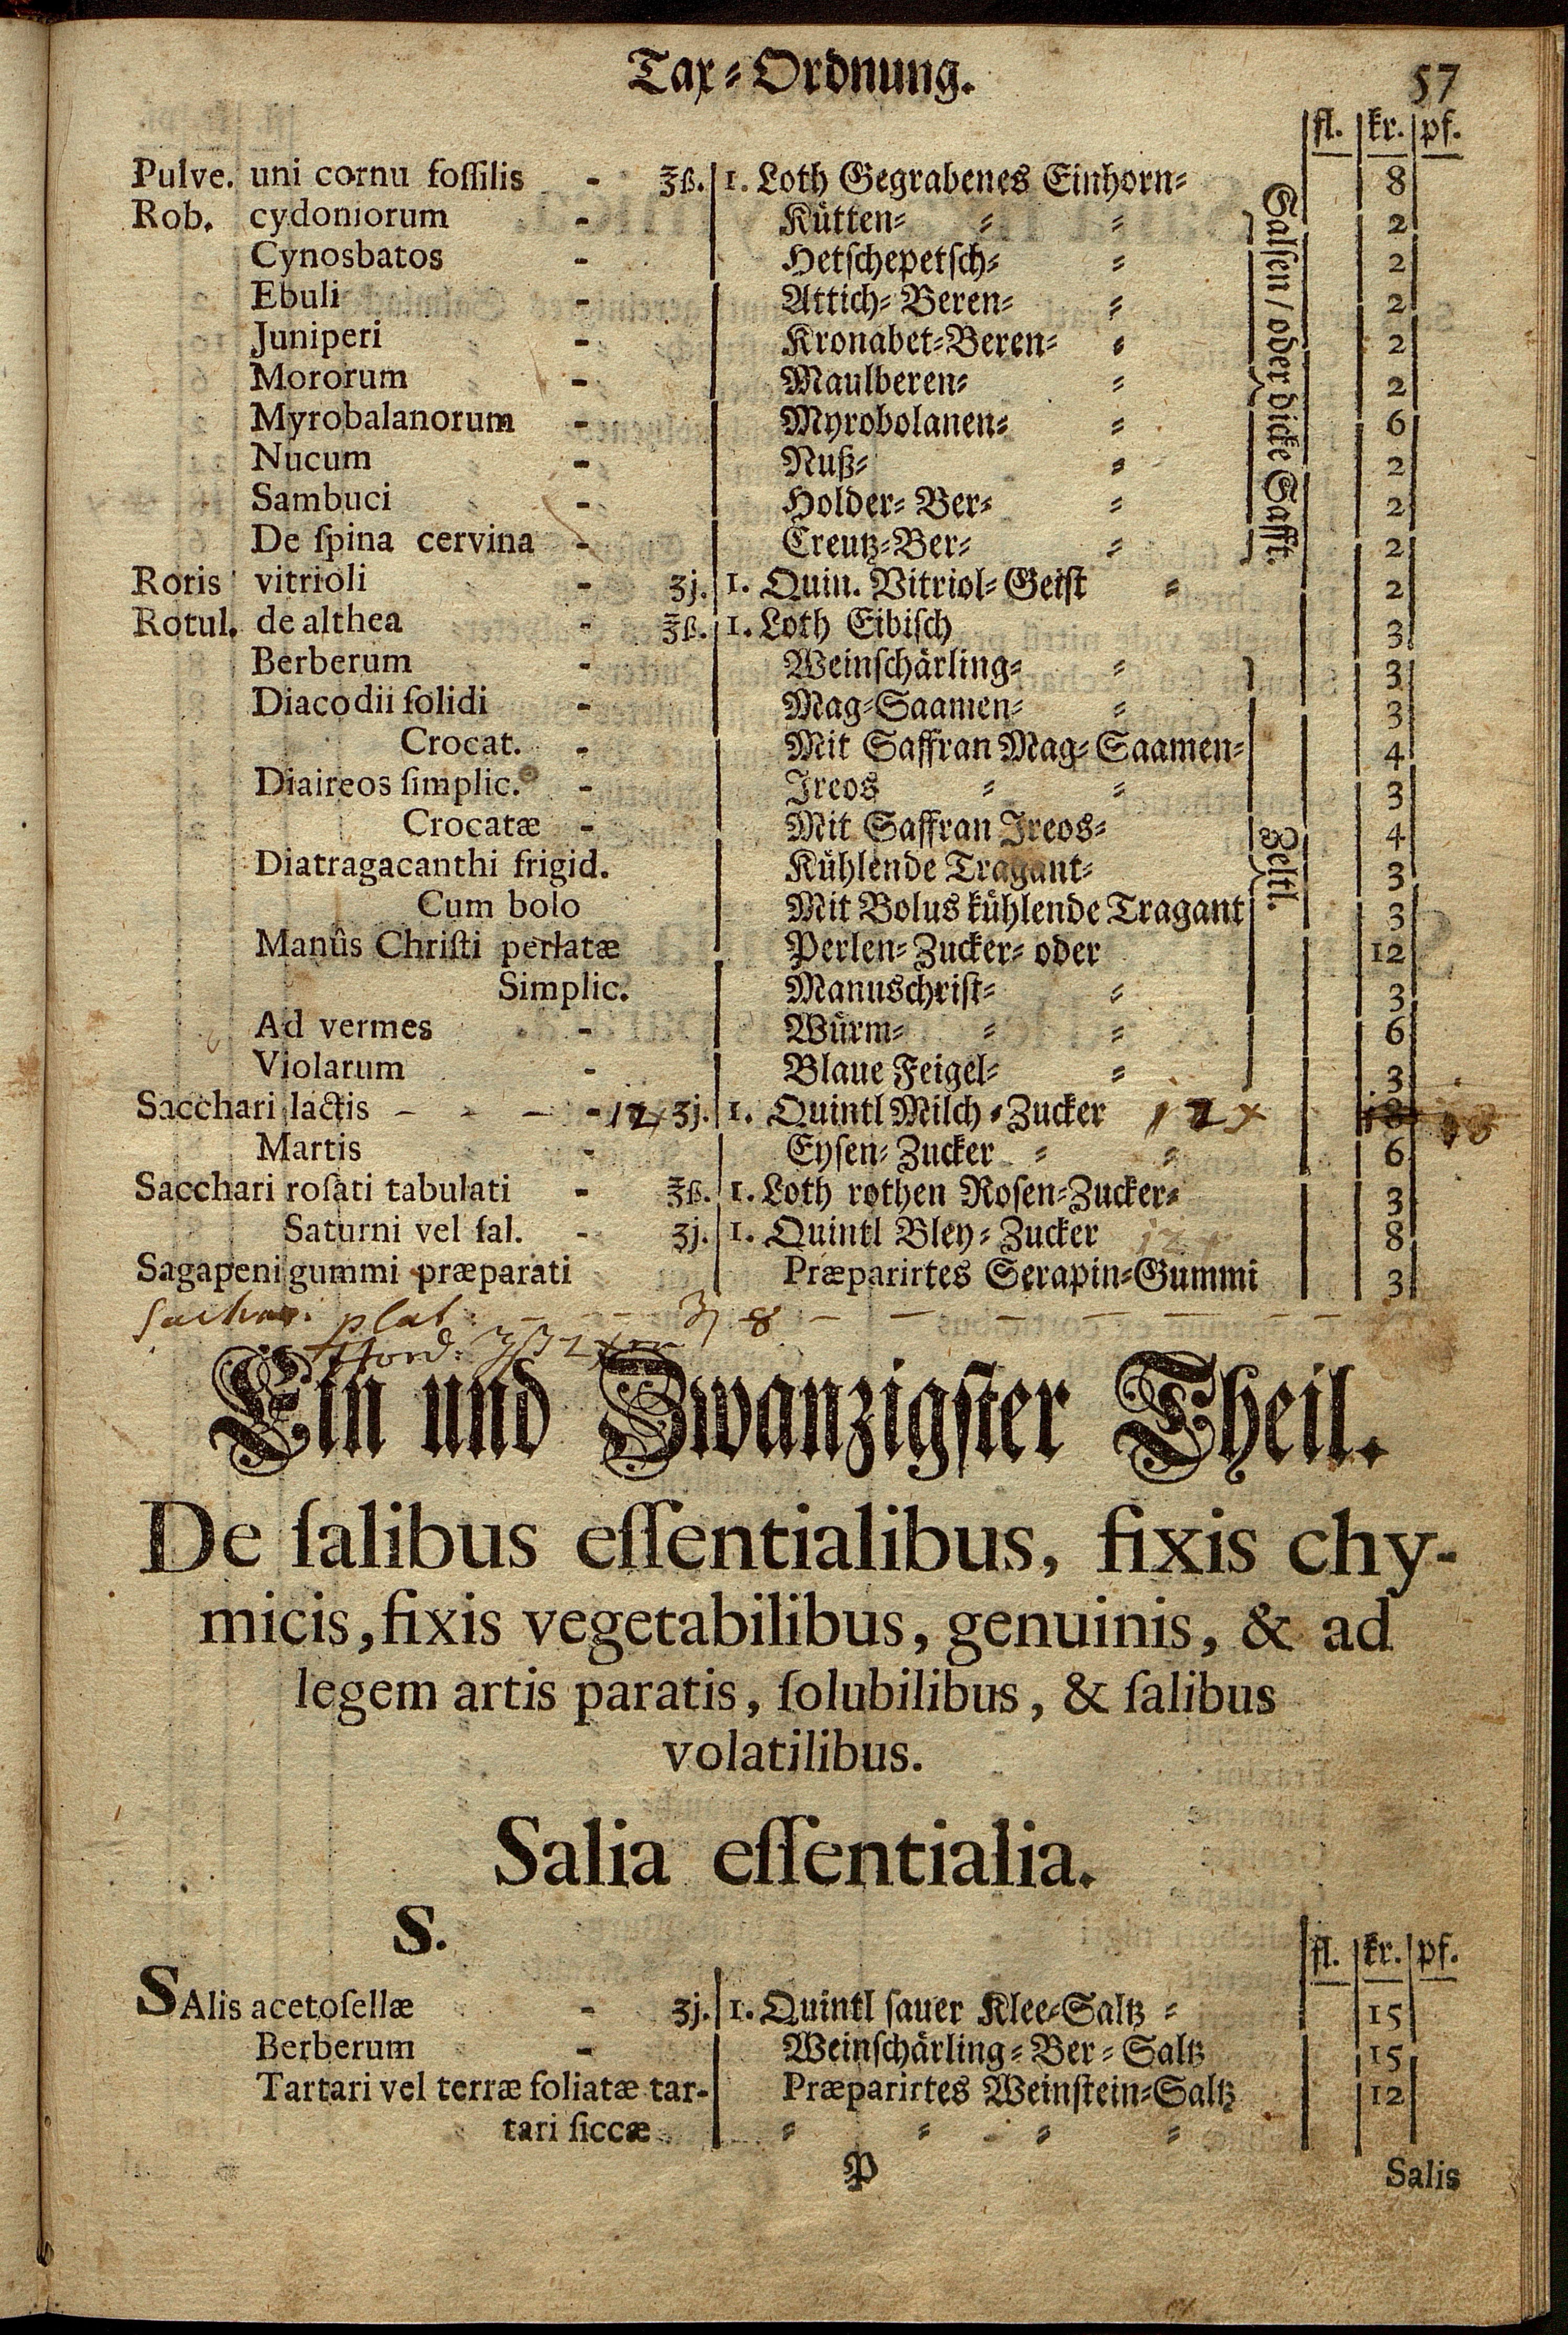 Tax-Ordnung. 57
fl. kr. pf.
Pulve. uni cornu foſſilis - ℥ß. 1. Loth Gegrabenes Einhorn- 8
Rob. cydoniorum - Kütten- - - 2
Cynosbatos - Hetſchepetſch- - 2
Ebuli - Attich-Beren- - 2
Juniperi - Kronabet-Beren- - 2
Mororum - Maulberen- - 2
Myrobalanorum - Myrobolanen- - 6
Nucum - Nuß- - 2
Sambuci - Holder-Ber- - 2
De ſpina cervina - Creutz-Ber- - 2
Salſen / oder dicke Säfft.
Roris vitrioli - ʒj. 1. Quin. Vitriol-Geiſt - 2
Rotul. de althea - ℥ß. 1. Loth Eibiſch 3
Berberum - Weinſchärling- - 3
Diacodii ſolidi - Mag-Saamen- - 3
Crocat. - Mit Saffran Mag-Saamen- 4
Diaireos ſimplic. - Ireos - - 3
Crocatæ - Mit Saffran Ireos- 4
Diatragacanthi frigid. Kühlende Tragant- 3
Cum bolo Mit Bolus kühlende Tragant 3
Manûs Chriſti perlatæ Perlen-Zucker- oder 12
Simplic. Manuschriſt- - 3
Ad vermes - Würm- - - 6
Violarum - Blaue Feigel- - 3
Zeltl.
Sacchari lactis - - - - 12x ʒj. 1. Quintl Milch-Zucker 12x 18
Martis - Eyſen-Zucker - - 6
Sacchari roſati tabulati - ℥ß. 1. Loth rothen Roſen-Zucker- 3
Saturni vel ſal. - ʒj. 1. Quintl Bley-Zucker 8
Sagapeni gummi præparati Præparirtes Serapin-Gummi 3
plat. - - - 8 - - - -
Hord.
Ein und Zwanzigſter Theil.
De ſalibus eſſentialibus, fixis chy-
micis, fixis vegetabilibus, genuinis, & ad
legem artis paratis, ſolubilibus, & ſalibus
volatilibus.
Salia eſſentialia.
S.
fl. kr. pf.
SAlis acetoſellæ - ʒj. 1. Quintl ſauer Klee-Saltz - 15
Berberum - Weinſchärling-Ber-Saltz 15
Tartari vel terræ foliatæ tar- Præparirtes Weinſtein-Saltz 12
tari ſiccæ - - - -
P Salis